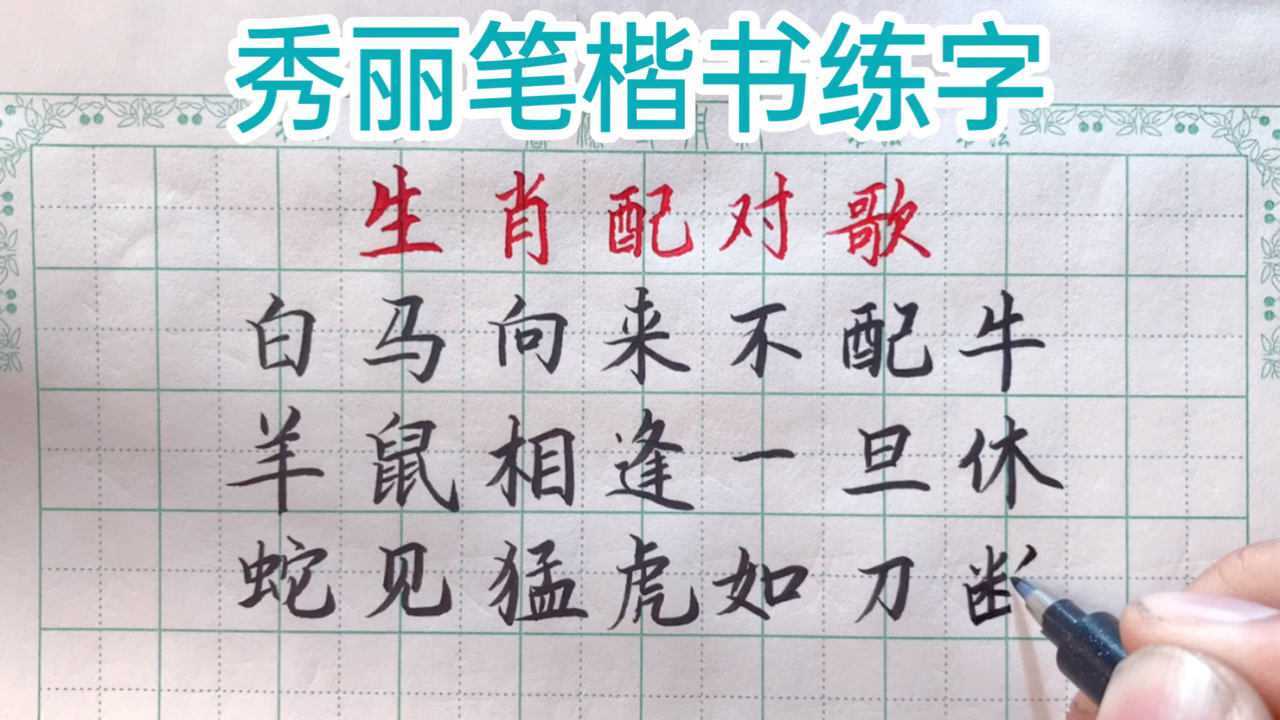 秀丽笔楷书练字
生肖配对歌
白马向来不配牛
羊鼠相逢一旦休
蛇见猛虎如刀